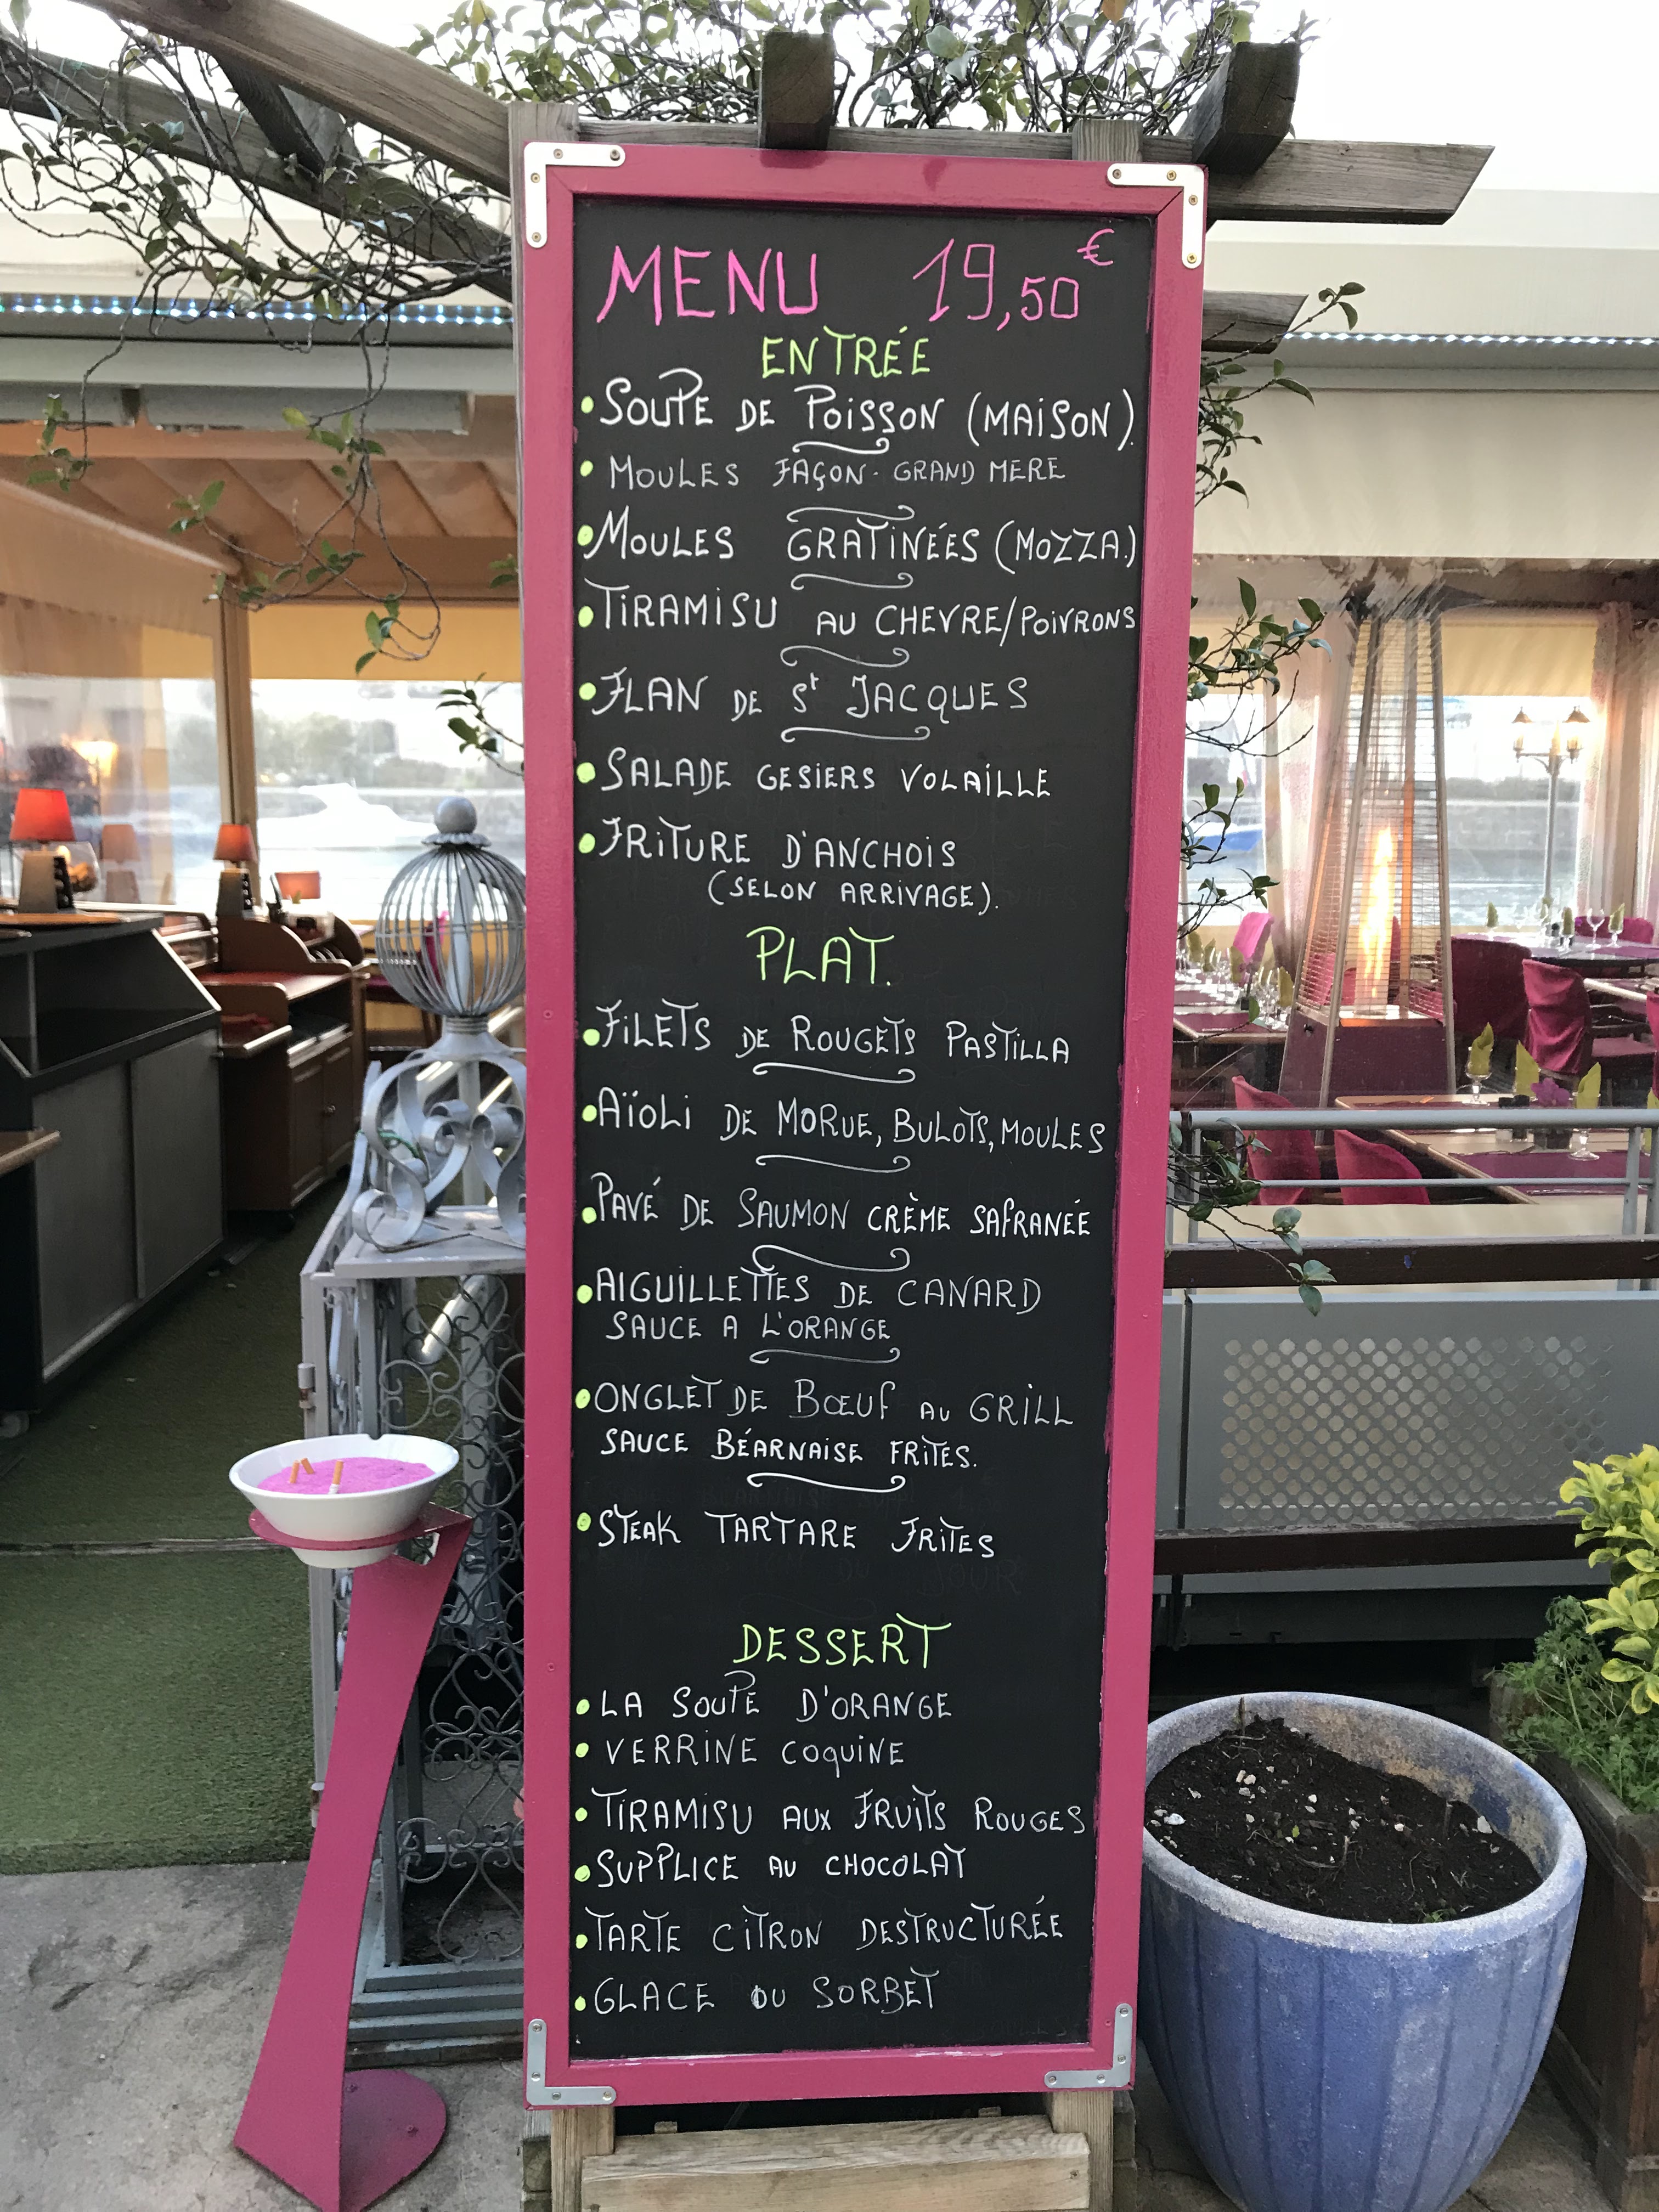 MENU 19,50€
ENTRÉE
•SOUPE DE POISSON (MAISON).
• MOULES FAÇON-GRAND MERE
•MOULES GRATINÉES (MOZZA.)
•TIRAMISU AU CHEVRE/POIVRONS
•FLAN DE St JACQUES
•SALADE GESIERS VOLAILLE
•FRITURE D'ANCHOIS
(SELON ARRIVAGE).
PLAT.
•FILETS DE ROUGETS PASTILLA
•AÏOLI DE MORUE, BULOTS, MOULES
•PAVÉ DE SAUMON CRÈME SAFRANÉE
•AIGUILLETTES DE CANARD
SAUCE A L'ORANGE
•ONGLET DE BŒUF AU GRILL
SAUCE BÉARNAISE FRITES.
•STEAK TARTARE FRITES
DESSERT
•LA SOUPE D'ORANGE
•VERRINE COQUINE
•TIRAMISU AUX FRUITS ROUGES
•SUPPLICE AU CHOCOLAT
•TARTE CITRON DESTRUCTURÉE
•GLACE OU SORBET